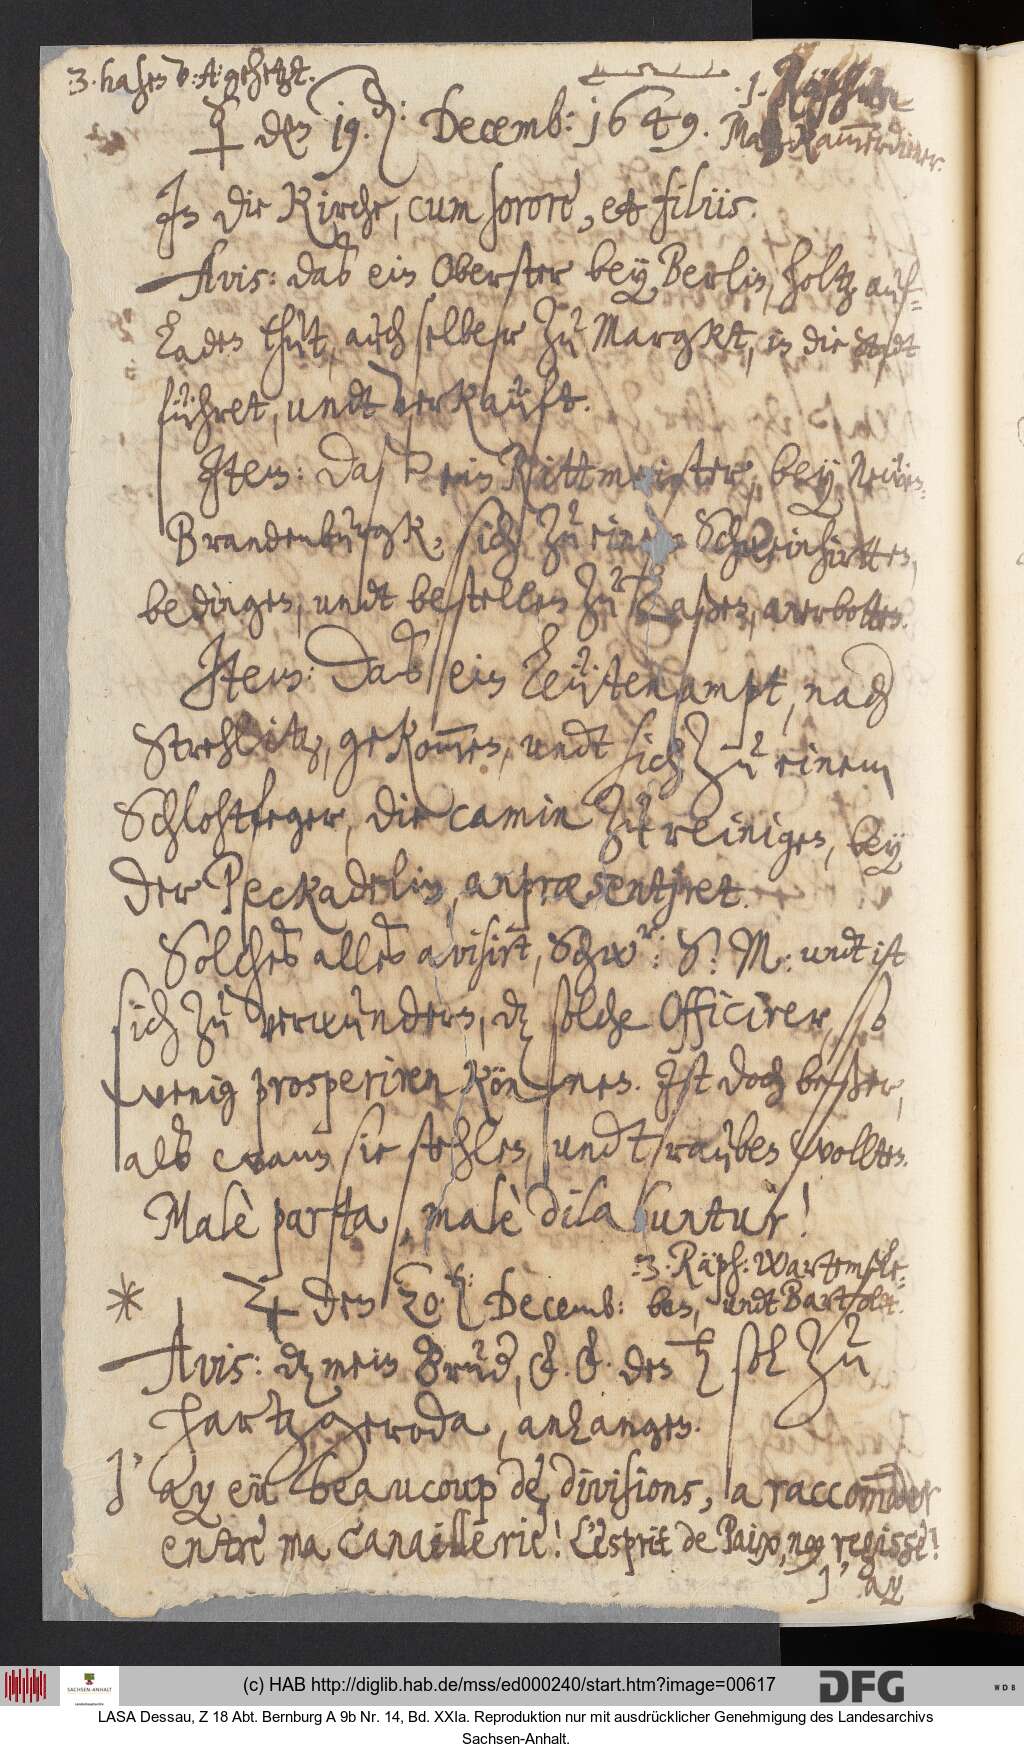 3. hasen v: A: gehetzt.
☿ den 19. Xb: Decemb: 1649.
In die Kirche, cum sorore, et filiis.
Avis: daß ein Oberster bey Berlin, holtz auf-
laden thut, auch selber zu Margkt, in die Stadt
führet, undt verkauft.
Item: daß ein Rittmeister, bey Newen-
Brandenburgk, sich zu einem Schweinhirtten,
bedingen, undt bestellen zu laßen, anerbotten.
Item: daß ein Leütenampt, nach
Strehlitz, gekom̅en, undt sich zu einem
Schlohtfeger, die camin zu reinigen, bey
der Peckadelin, anpræsentiret.
Solches alles avisirt, Schwr: S: M: undt ist
sich zu verwundern, dz solche Officirer, so
wenig prosperiren können. Ist doch beßer,
alß wann sie stehlen, undt rauben wollten.
Malè parta, malè dilabuntur!
3. Räph: Wartensle-
♃ den 20. Decemb: ben, undt Barthold.
Avis: dz mein Brud, F. F. den ♄ soll zu
Hartzgeroda, anlangen.
J' ay eü beaucoup de divisions, a raccom̅oder
entre ma Canaillerie! L'esprit de Paix, nous regisse!
J' ay
(c) HAB http://diglib.hab.de/mss/ed000240/start.htm?image=00617
SACHSEN-ANHALT
DFG
WDB
LASA Dessau, Z 18 Abt. Bernburg A 9b Nr. 14, Bd. XXIa. Reproduktion nur mit ausdrücklicher Genehmigung des Landesarchivs
Sachsen-Anhalt.